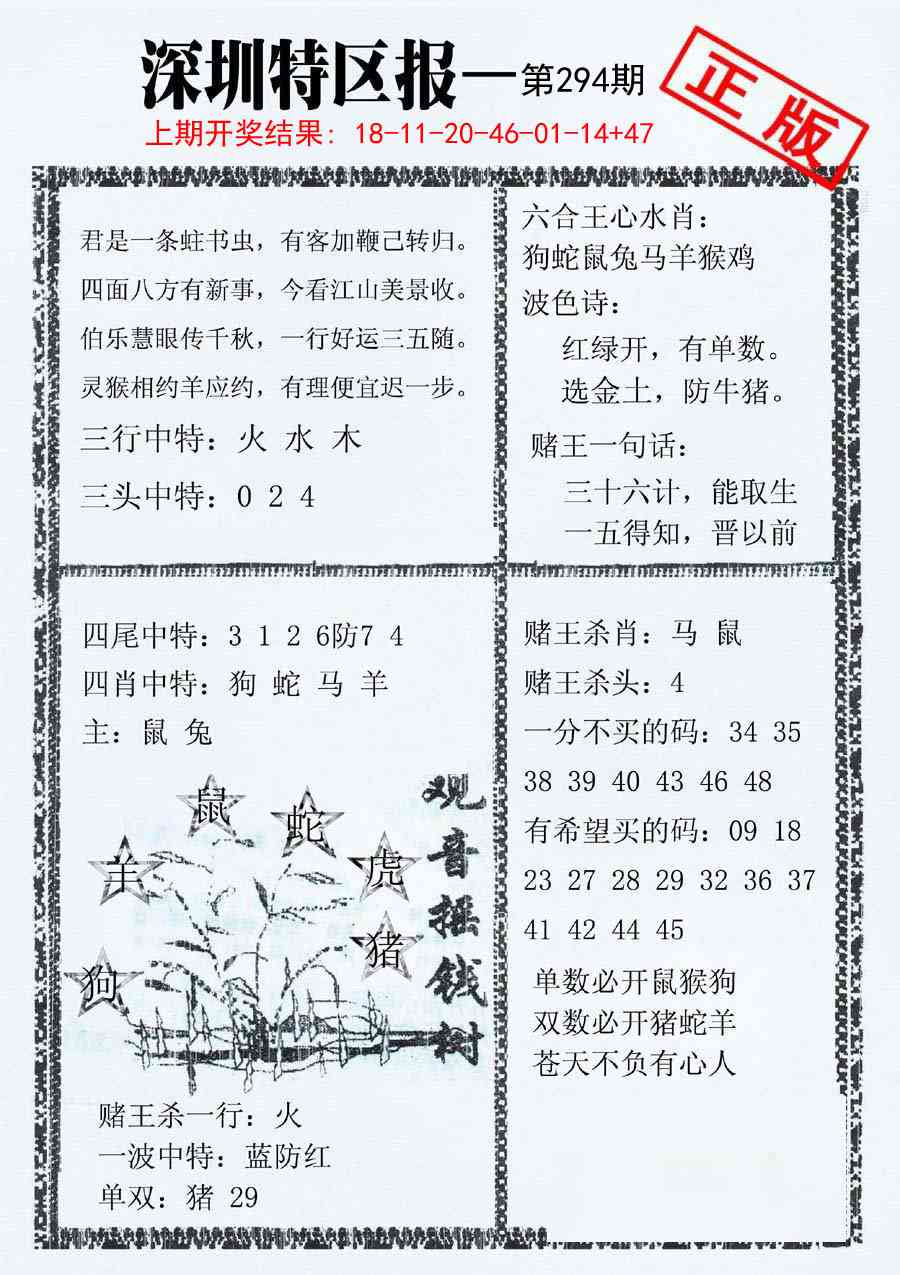 深圳特区报—第294期
正版
上期开奖结果：18-11-20-46-01-14+47
君是一条蛀书虫，有客加鞭己转归。
四面八方有新事，今看江山美景收。
伯乐慧眼传千秋，一行好运三五随。
灵猴相约羊应约，有理便宜迟一步。
三行中特：火 水 木
三头中特：0 2 4
六合王心水肖：
狗蛇鼠兔马羊猴鸡
波色诗：
红绿开，有单数。
选金土，防牛猪。
赌王一句话：
三十六计，能取生
一五得知，晋以前
四尾中特：3 1 2 6防7 4
四肖中特：狗 蛇 马 羊
主：鼠 兔
鼠
蛇
羊
虎
猪
狗
观音摇钱树
赌王杀一行：火
一波中特：蓝防红
单双：猪 29
赌王杀肖：马 鼠
赌王杀头：4
一分不买的码：34 35
38 39 40 43 46 48
有希望买的码：09 18
23 27 28 29 32 36 37
41 42 44 45
单数必开鼠猴狗
双数必开猪蛇羊
苍天不负有心人